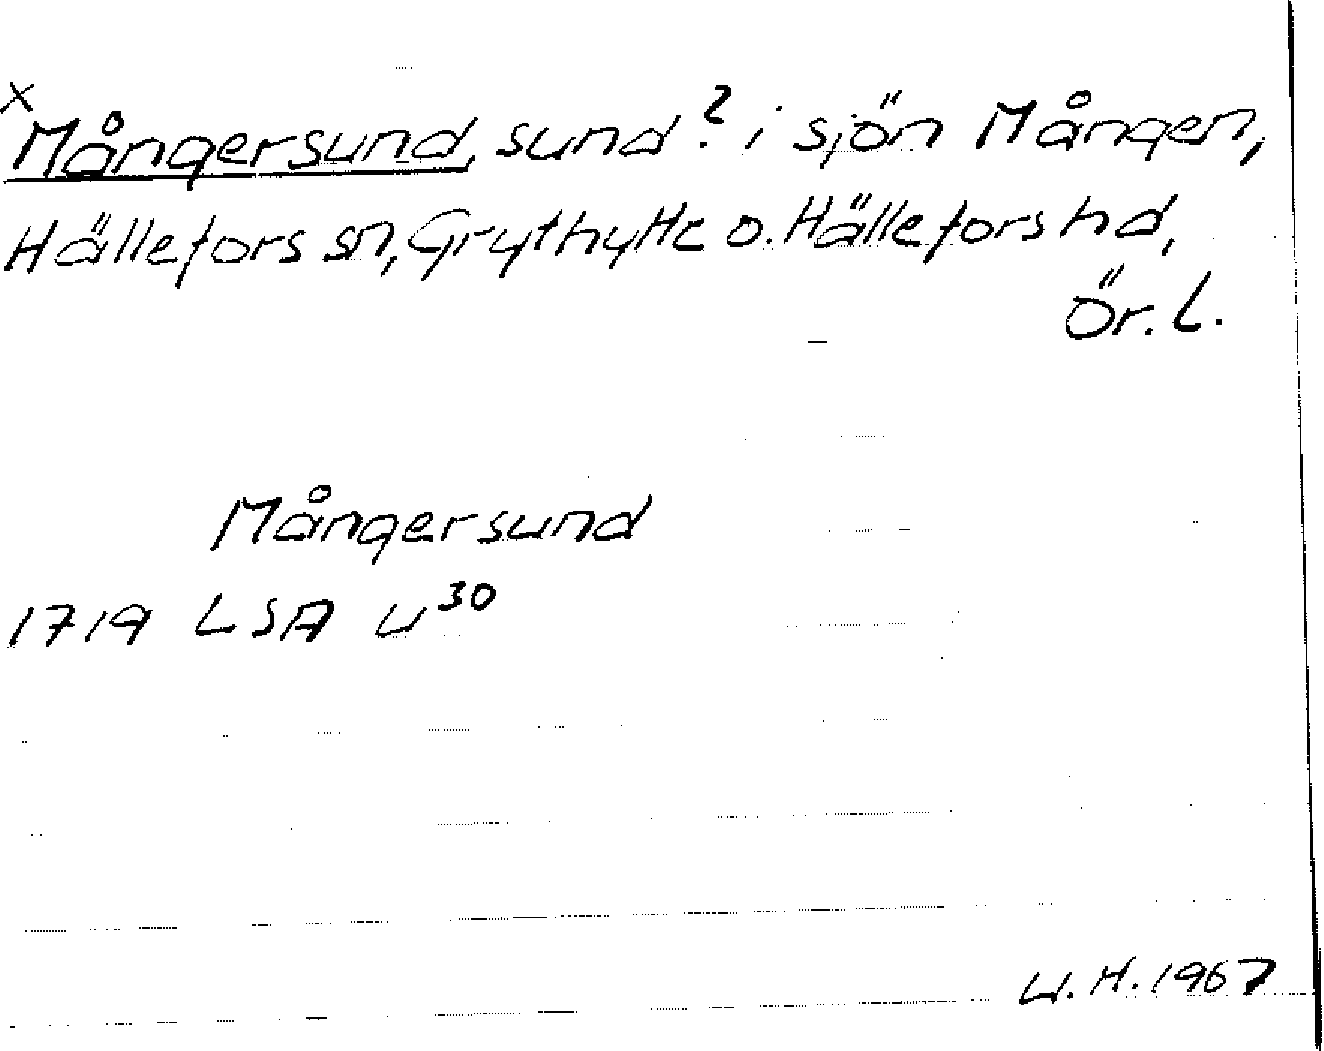 x Mångersund, sund? i sjön Mången,
Hällefors sn, Grythytte o. Hällefors hd,
Ör. L.
Mångersund
1719 LSA U 30
U.H. 1967